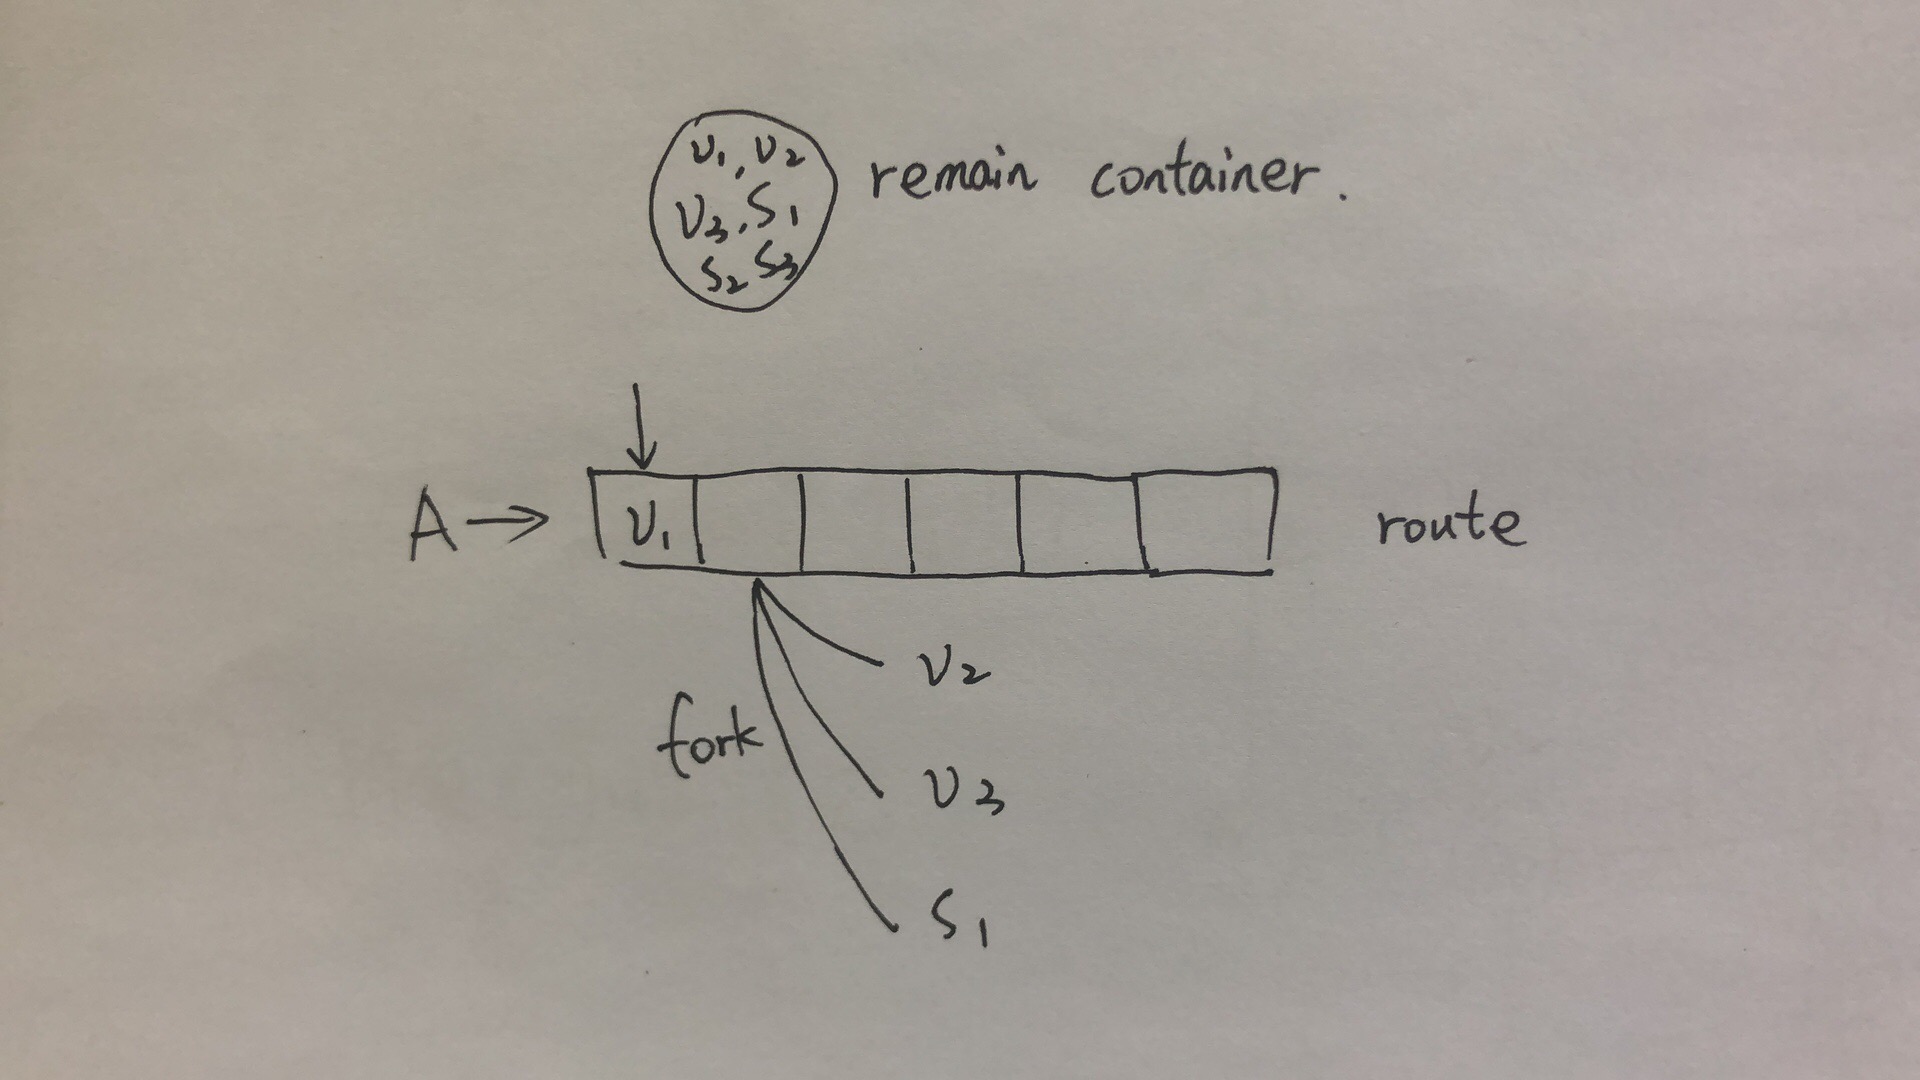 υ₁, υ₂
υ₃, S₁
S₂ S₃
remain container.
A → υ₁
route
fork
υ₂
υ₃
S₁